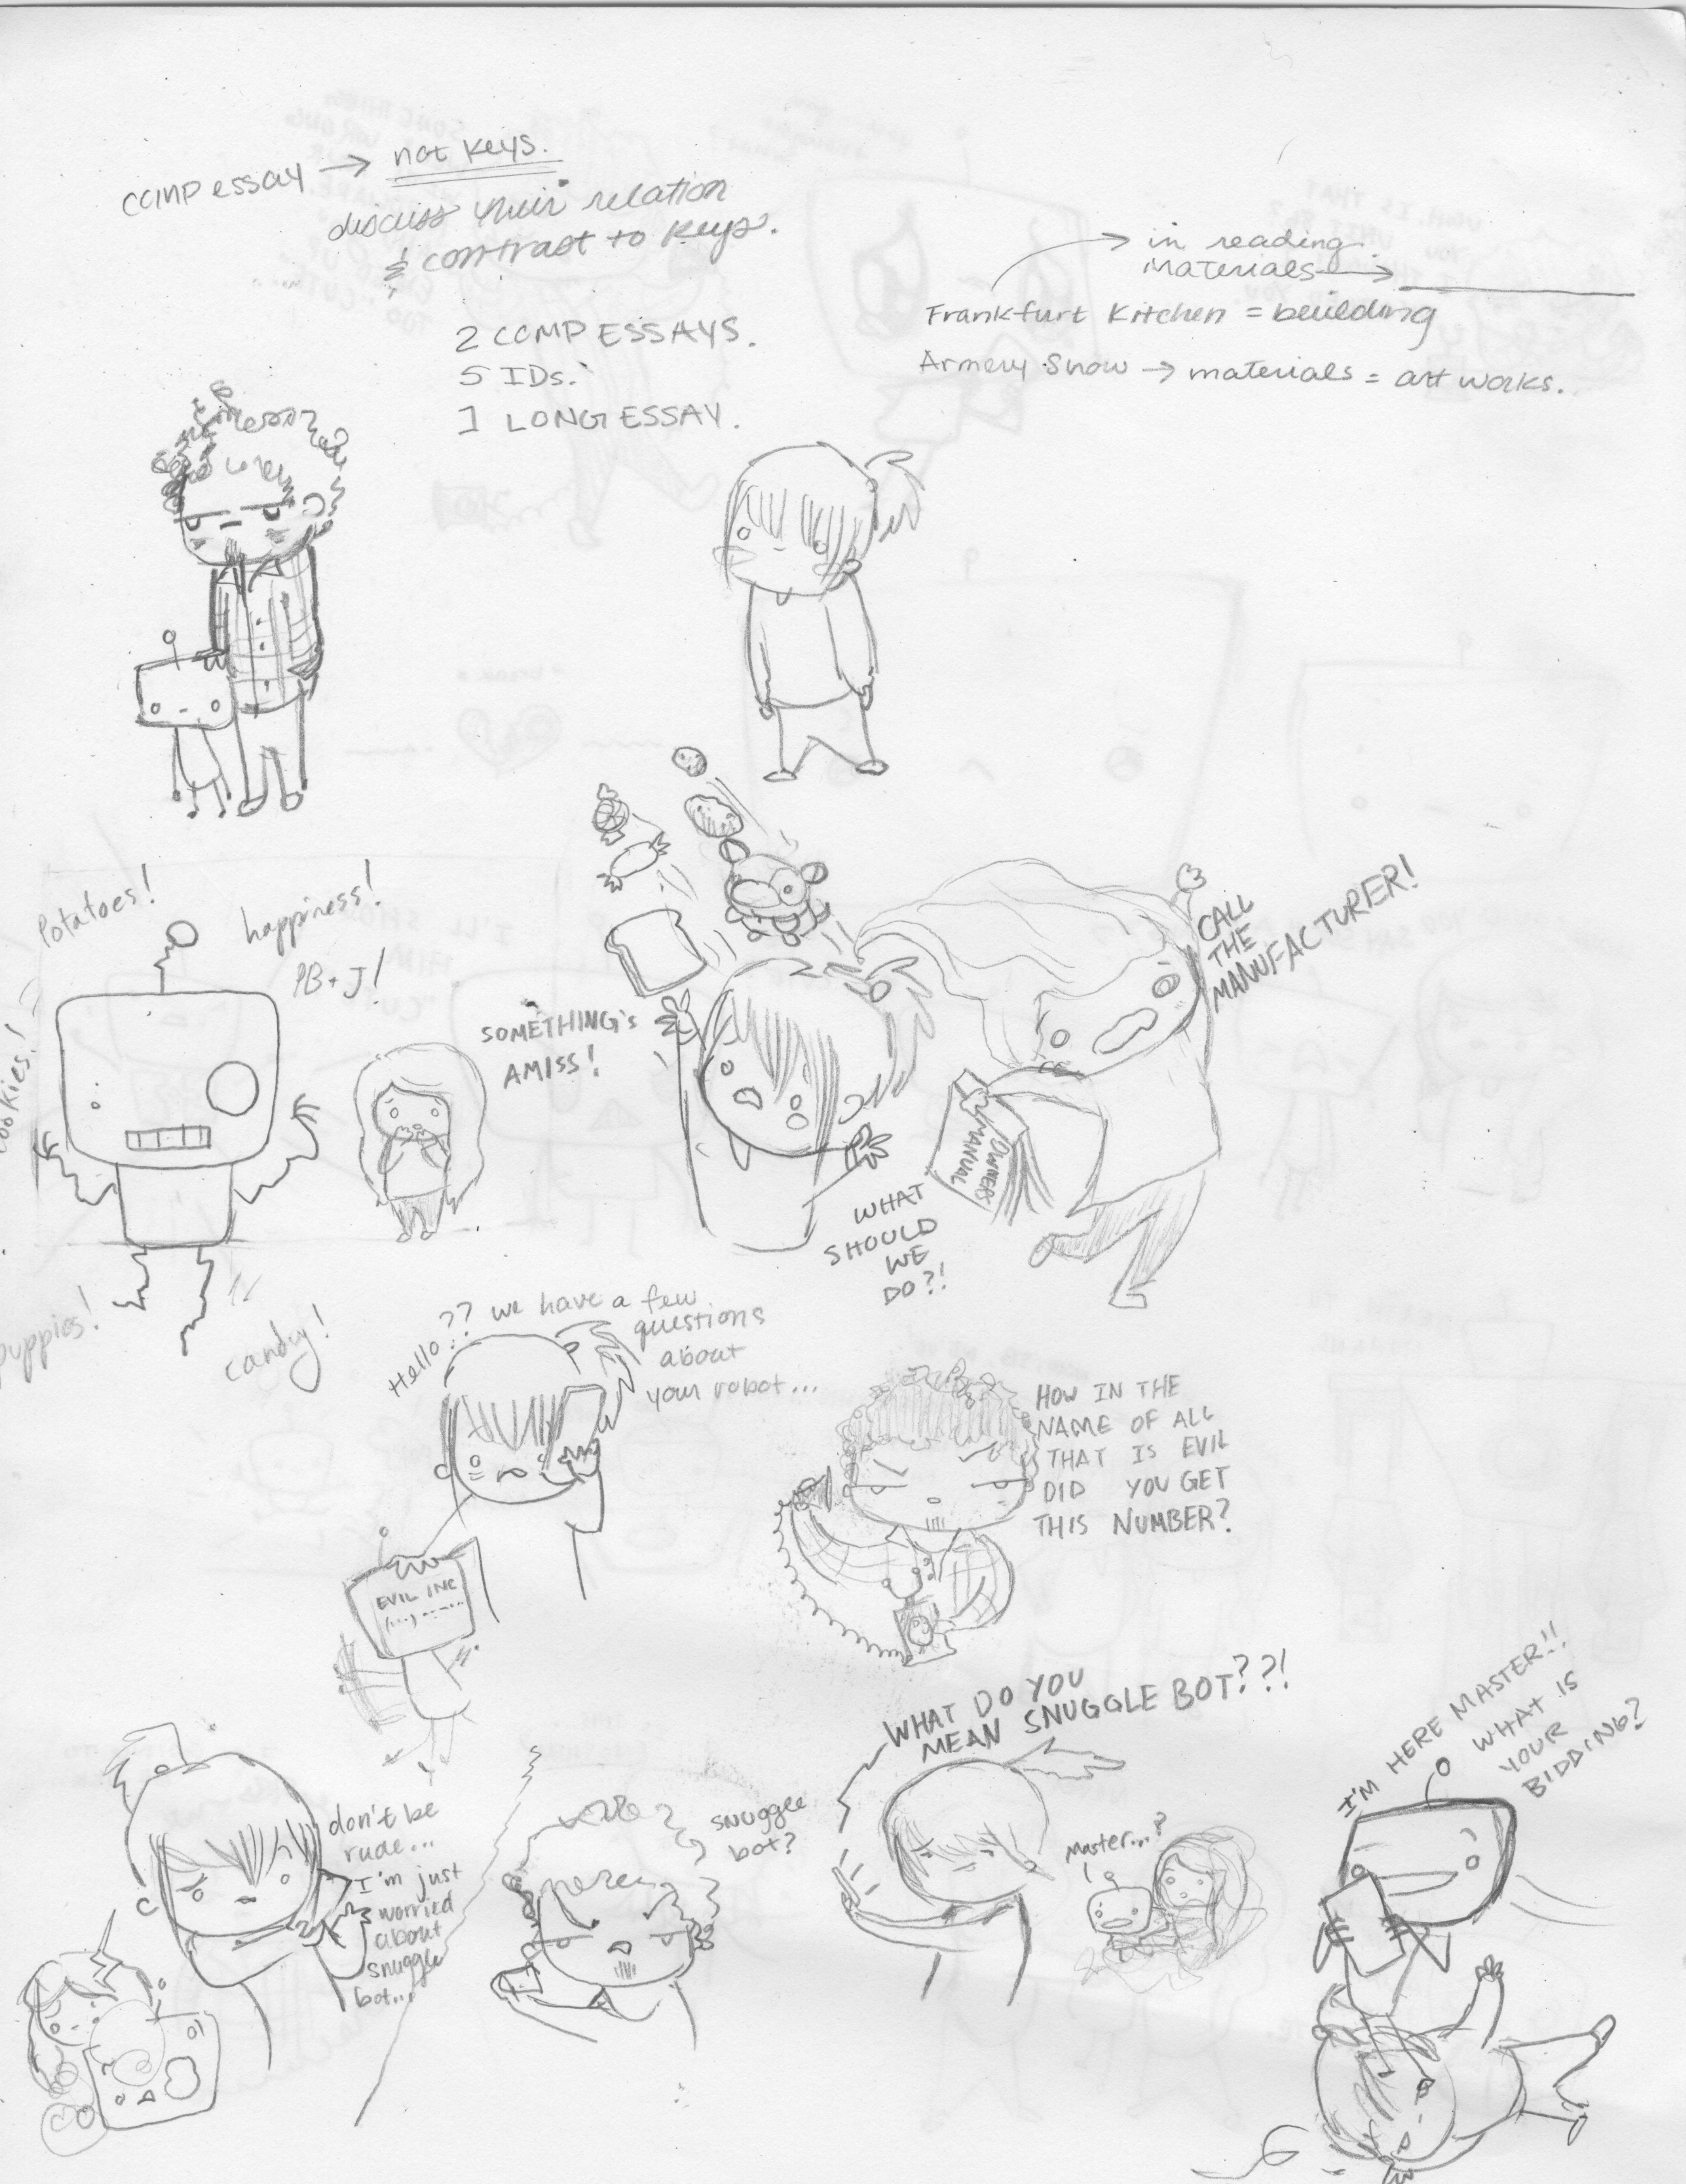 comp essay → not keys.
discuss their relation
& contrast to keys.
2 COMP ESSAYS.
5 IDs.
1 LONG ESSAY.
→ in reading
materials →
Frankfurt Kitchen = building
Armory Show → materials = art works.
Potatoes!
happiness!
PB + J!
cookies!
puppies!
candy!
SOMETHING'S
AMISS!
CALL
THE
MANUFACTURER!
OWNERS
MANUAL
WHAT
SHOULD
WE
DO?!
Hello?? we have a few
questions
about
your robot...
EVIL INC
HOW IN THE
NAME OF ALL
THAT IS EVIL
DID YOU GET
THIS NUMBER?
don't be
rude...
I'm just
worried
about
snuggle
bot...
snuggle
bot?
WHAT DO YOU
MEAN SNUGGLE BOT??!
Master...?
I'M HERE MASTER!!
WHAT IS
YOUR
BIDDING?